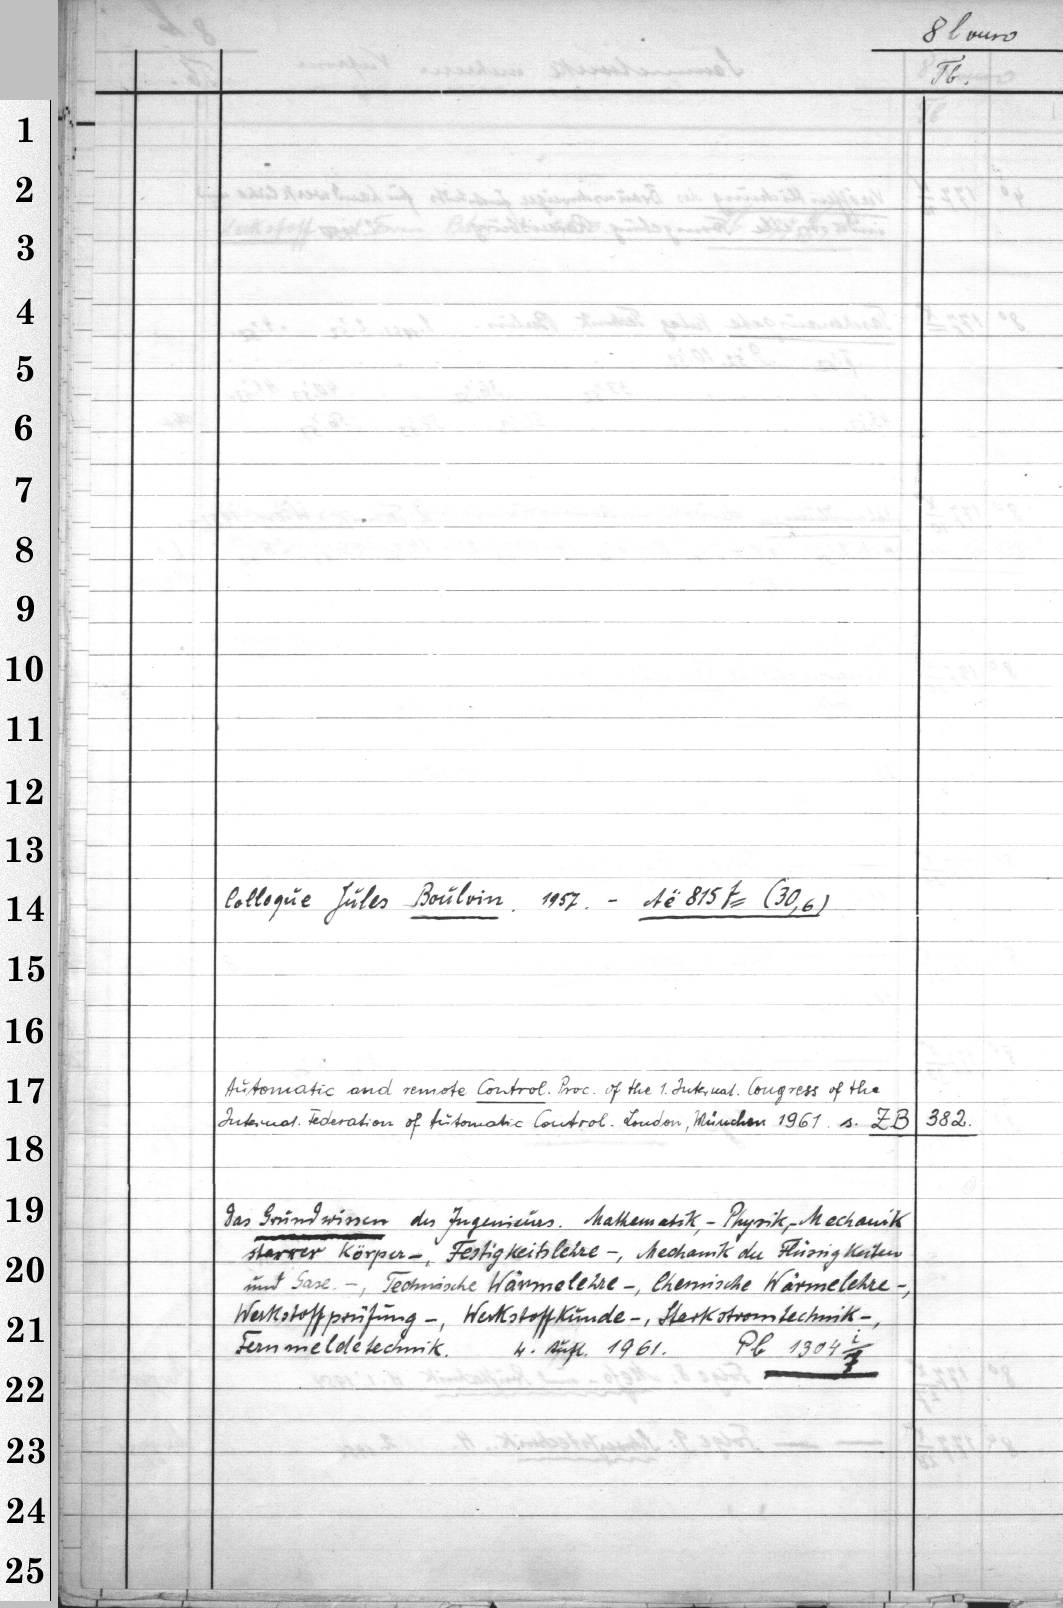 8 l
Tb.
1
2
3
4
5
6
7
8
9
10
11
12
13
14
Colloque Jules Boulvin. 1957. - Aë 815 (30,6)
15
16
17
Automatic and remote Control. Proc. of the 1. Internat. Congress of the
Internat. Federation of Automatic Control. London, München 1961. s. ZB 382.
18
19
Das Grundwissen des Ingenieurs. Mathematik, - Physik, - Mechanik
starrer Körper -, Festigkeitslehre -, Mechanik der Flüssigkeiten
20
und Gase. -, Technische Wärmelehre -, Chemische Wärmelehre -,
21
Werkstoffprüfung -, Werkstoffkunde -, Starkstromtechnik -,
Fernmeldetechnik. 4. Aufl. 1961. Pb 1304
22
23
24
25